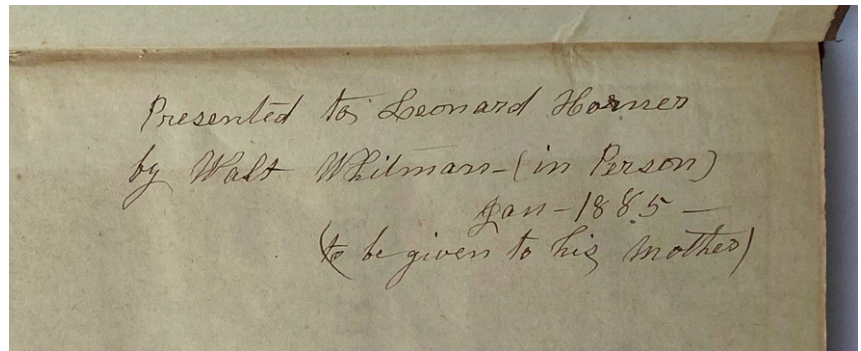 Presented to Leonard Horner
by Walt Whitman - (in Person)
Jan - 1885 —
(to be given to his Mother)